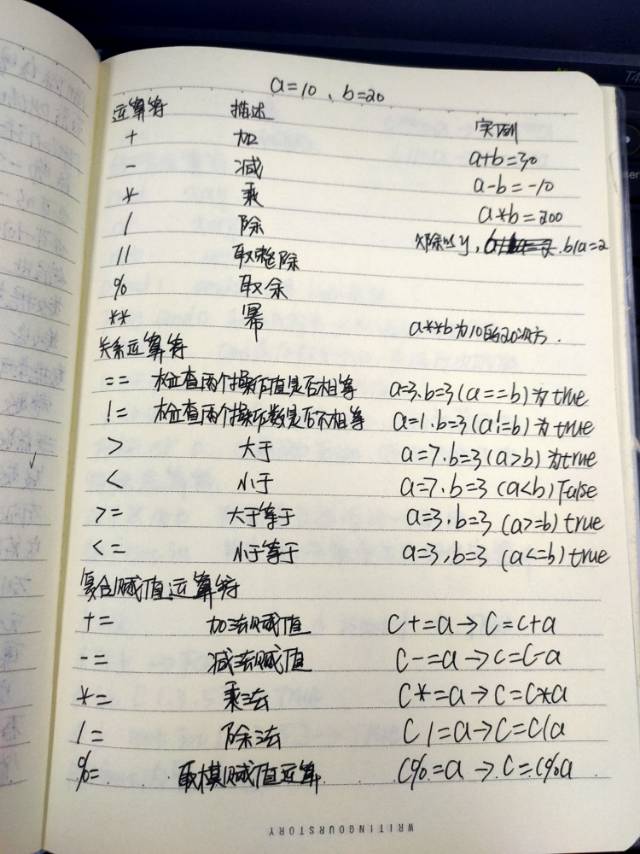 a=10、b=20
运算符 描述 实例
+ 加 a+b=30
- 减 a-b=-10
* 乘 a*b=200
/ 除 b/a=2
// 取整除
% 取余
** 幂 a**b为10的20次方.
关系运算符
== 检查两个操作值是否相等 a=3.b=3(a==b)为true
!= 检查两个操作数是否不相等 a=1.b=3(a!=b)为true
> 大于 a=7.b=3(a>b)为true
< 小于 a=7.b=3(a<b)False
>= 大于等于 a=3.b=3(a>=b)true
<= 小于等于 a=3,b=3(a<=b)true
复合赋值运算符
+= 加法赋值 C+=a→C=C+a
-= 减法赋值 C-=a→C=C-a
*= 乘法 C*=a→C=C*a
/= 除法 C/=a→C=C/a
%= 取模赋值运算 C%=a→C=C%a
WRITINGOURSTORY